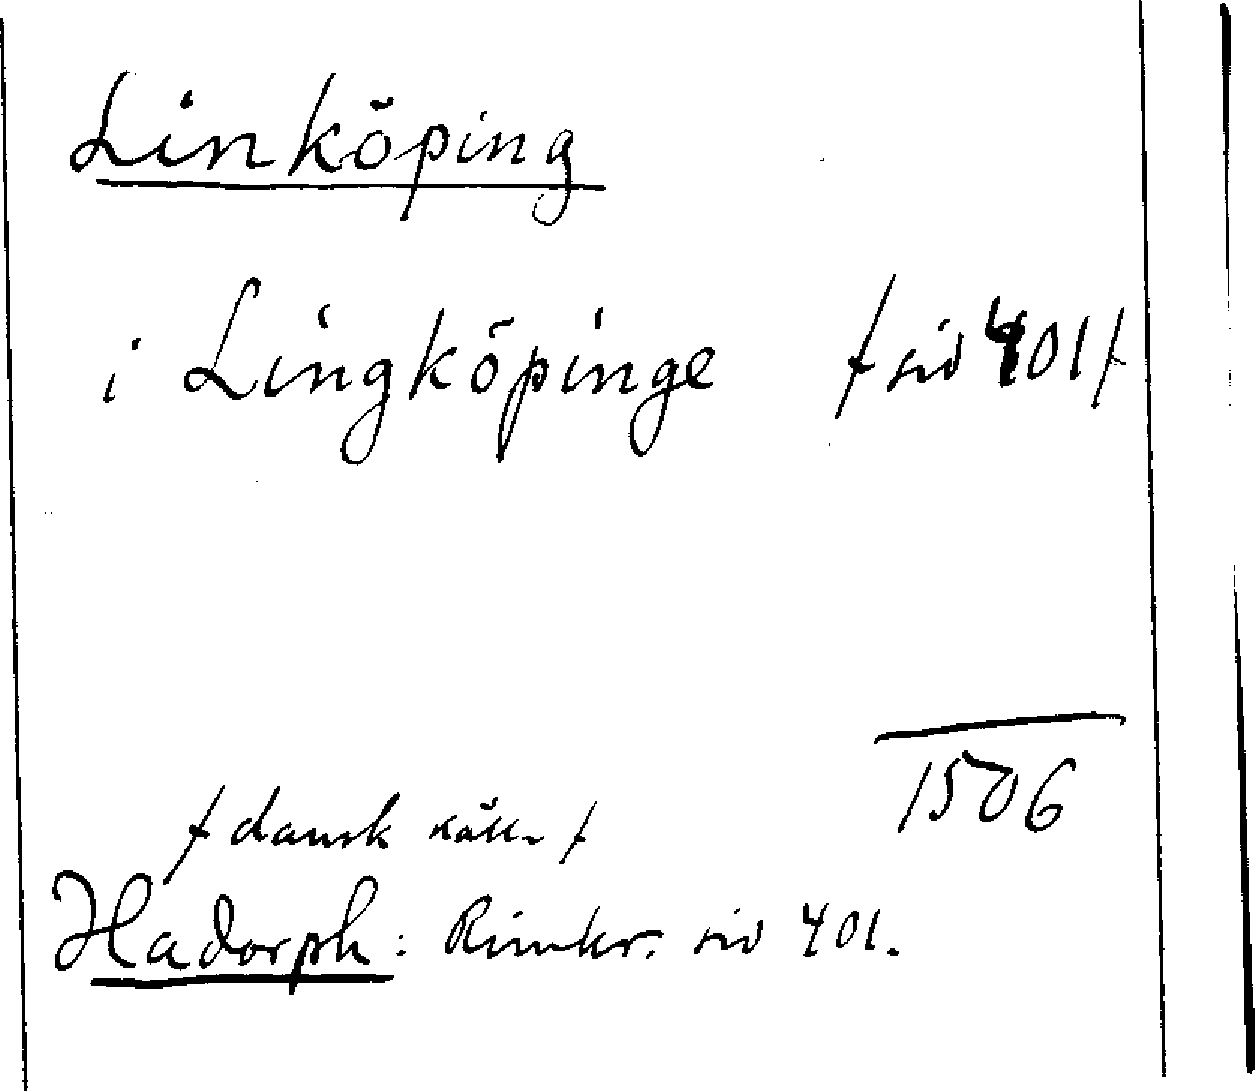 Linköping
i Lingköpinge / sid 401 /
1506
/ dansk käll. /
Hadorph: Rimkr. sid 401.